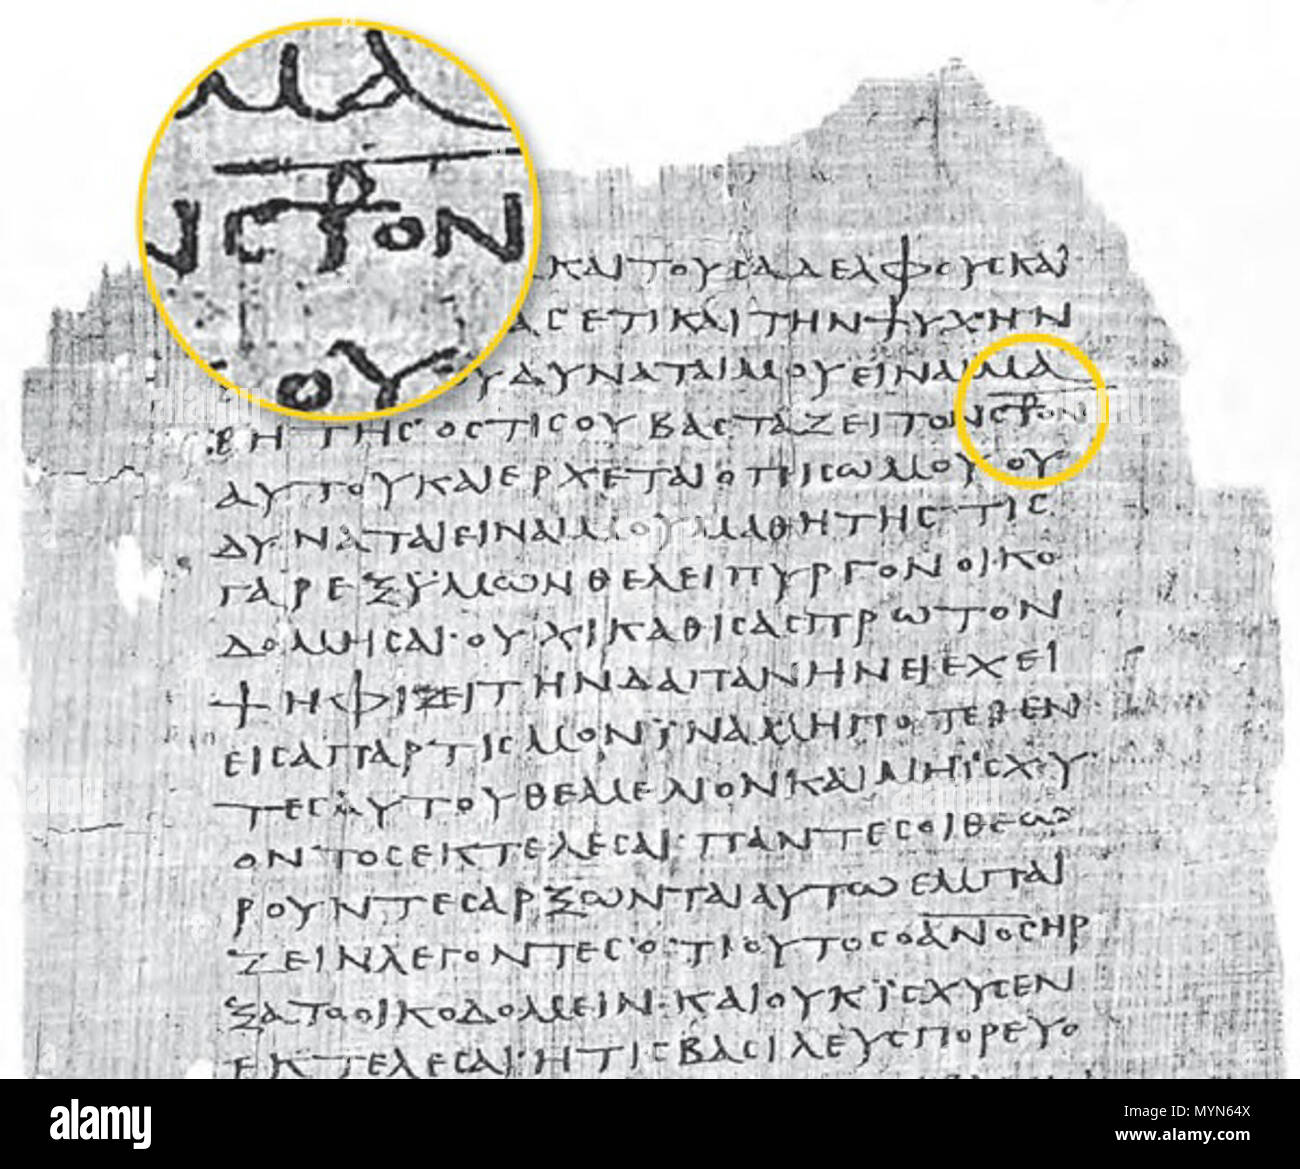 ΜΑ
ΝϹΤΡΟΝ
ΟΥ
ΚΑΙΤΟΥϹΑΔΕΛΦΟΥϹΚΑΙ
ΑϹΕΤΙΚΑΙΤΗΝΨΥΧΗΝ
ΥΔΥΝΑΤΑΙΜΟΥΕΙΝΑΙΜΑ
ΘΗΤΗϹ·ΟϹΤΙϹΟΥΒΑϹΤΑΖΕΙΤΟΝϹΤΡΟΝ
ΑΥΤΟΥΚΑΙΕΡΧΕΤΑΙΟΠΙϹΩΜΟΥΟΥ
ΔΥΝΑΤΑΙΕΙΝΑΙΜΟΥΜΑΘΗΤΗϹ·ΤΙϹ
ΓΑΡΕΞΫΜΩΝΘΕΛΕΙΠΥΡΓΟΝΟΙΚΟ
ΔΟΜΗϹΑΙ·ΟΥΧΙΚΑΘΙϹΑϹΠΡΩΤΟΝ
ΨΗΦΙΖΕΙΤΗΝΔΑΠΑΝΗΝΕΙΕΧΕΙ
ΕΙϹΑΠΑΡΤΙϹΜΟΝΪΝΑΜΗΠΟΤΕΘΕΝ
ΤΕϹΑΥΤΟΥΘΕΜΕΛΙΟΝΚΑΙΜΗΪϹΧΥ
ΟΝΤΟϹΕΚΤΕΛΕϹΑΙ·ΠΑΝΤΕϹΟΙΘΕΩ
ΡΟΥΝΤΕϹΑΡΞΩΝΤΑΙΑΥΤΩΕΜΠΑΙ
ΖΕΙΝΛΕΓΟΝΤΕϹΟΤΙΟΥΤΟϹΟΑΝΟϹΗΡ
ΞΑΤΟΟΙΚΟΔΟΜΕΙΝ·ΚΑΙΟΥΚΪϹΧΥϹΕΝ
ΕΚΤΕΛΕϹΑΙ·ΗΤΙϹΒΑϹΙΛΕΥϹΠΟΡΕΥΟ
alamy
Image ID: MYN64X
www.alamy.com